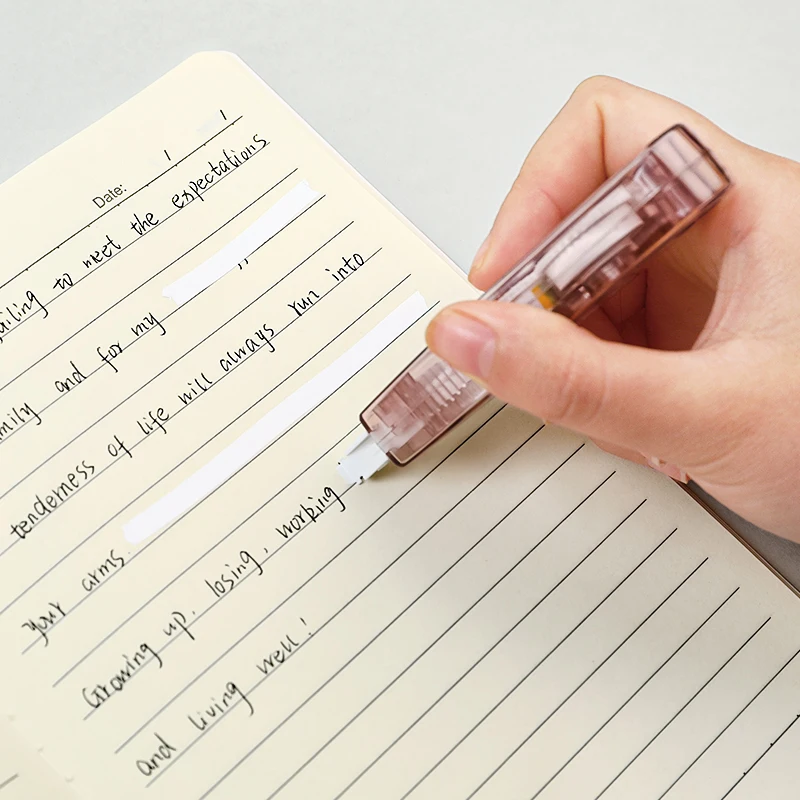 Date: / /
to meet the expectations
and for my
tenderness of life will always run into
your arms.
Growing up, losing, working
and living well!